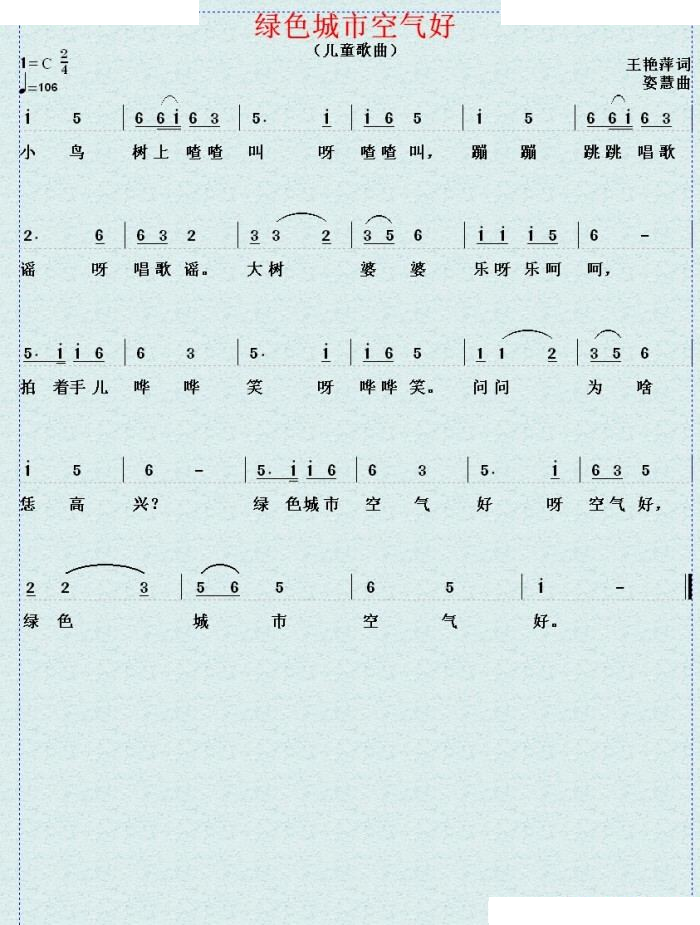 绿色城市空气好
（儿童歌曲）
1=C 2/4
王艳萍词
♩=106
娄慧曲
i 5 | 6 6 i 6 3 | 5· i | i 6 5 | i 5 | 6 6 i 6 3
小 鸟 树上 喳喳 叫 呀 喳喳 叫， 蹦 蹦 跳跳 唱歌
2· 6 | 6 3 2 | 3 3 2 | 3 5 6 | i i i 5 | 6 –
谣 呀 唱歌 谣。 大树 婆 婆 乐呀 乐呵 呵，
5· i i 6 | 6 3 | 5· i | i 6 5 | 1 1 2 | 3 5 6
拍 着手儿 哗 哗 笑 呀 哗哗 笑。 问问 为 啥
i 5 | 6 – | 5· i i 6 | 6 3 | 5· i | 6 3 5
恁 高 兴？ 绿 色城市 空 气 好 呀 空气 好，
2 2 3 | 5 6 5 | 6 5 | i –
绿 色 城 市 空 气 好。